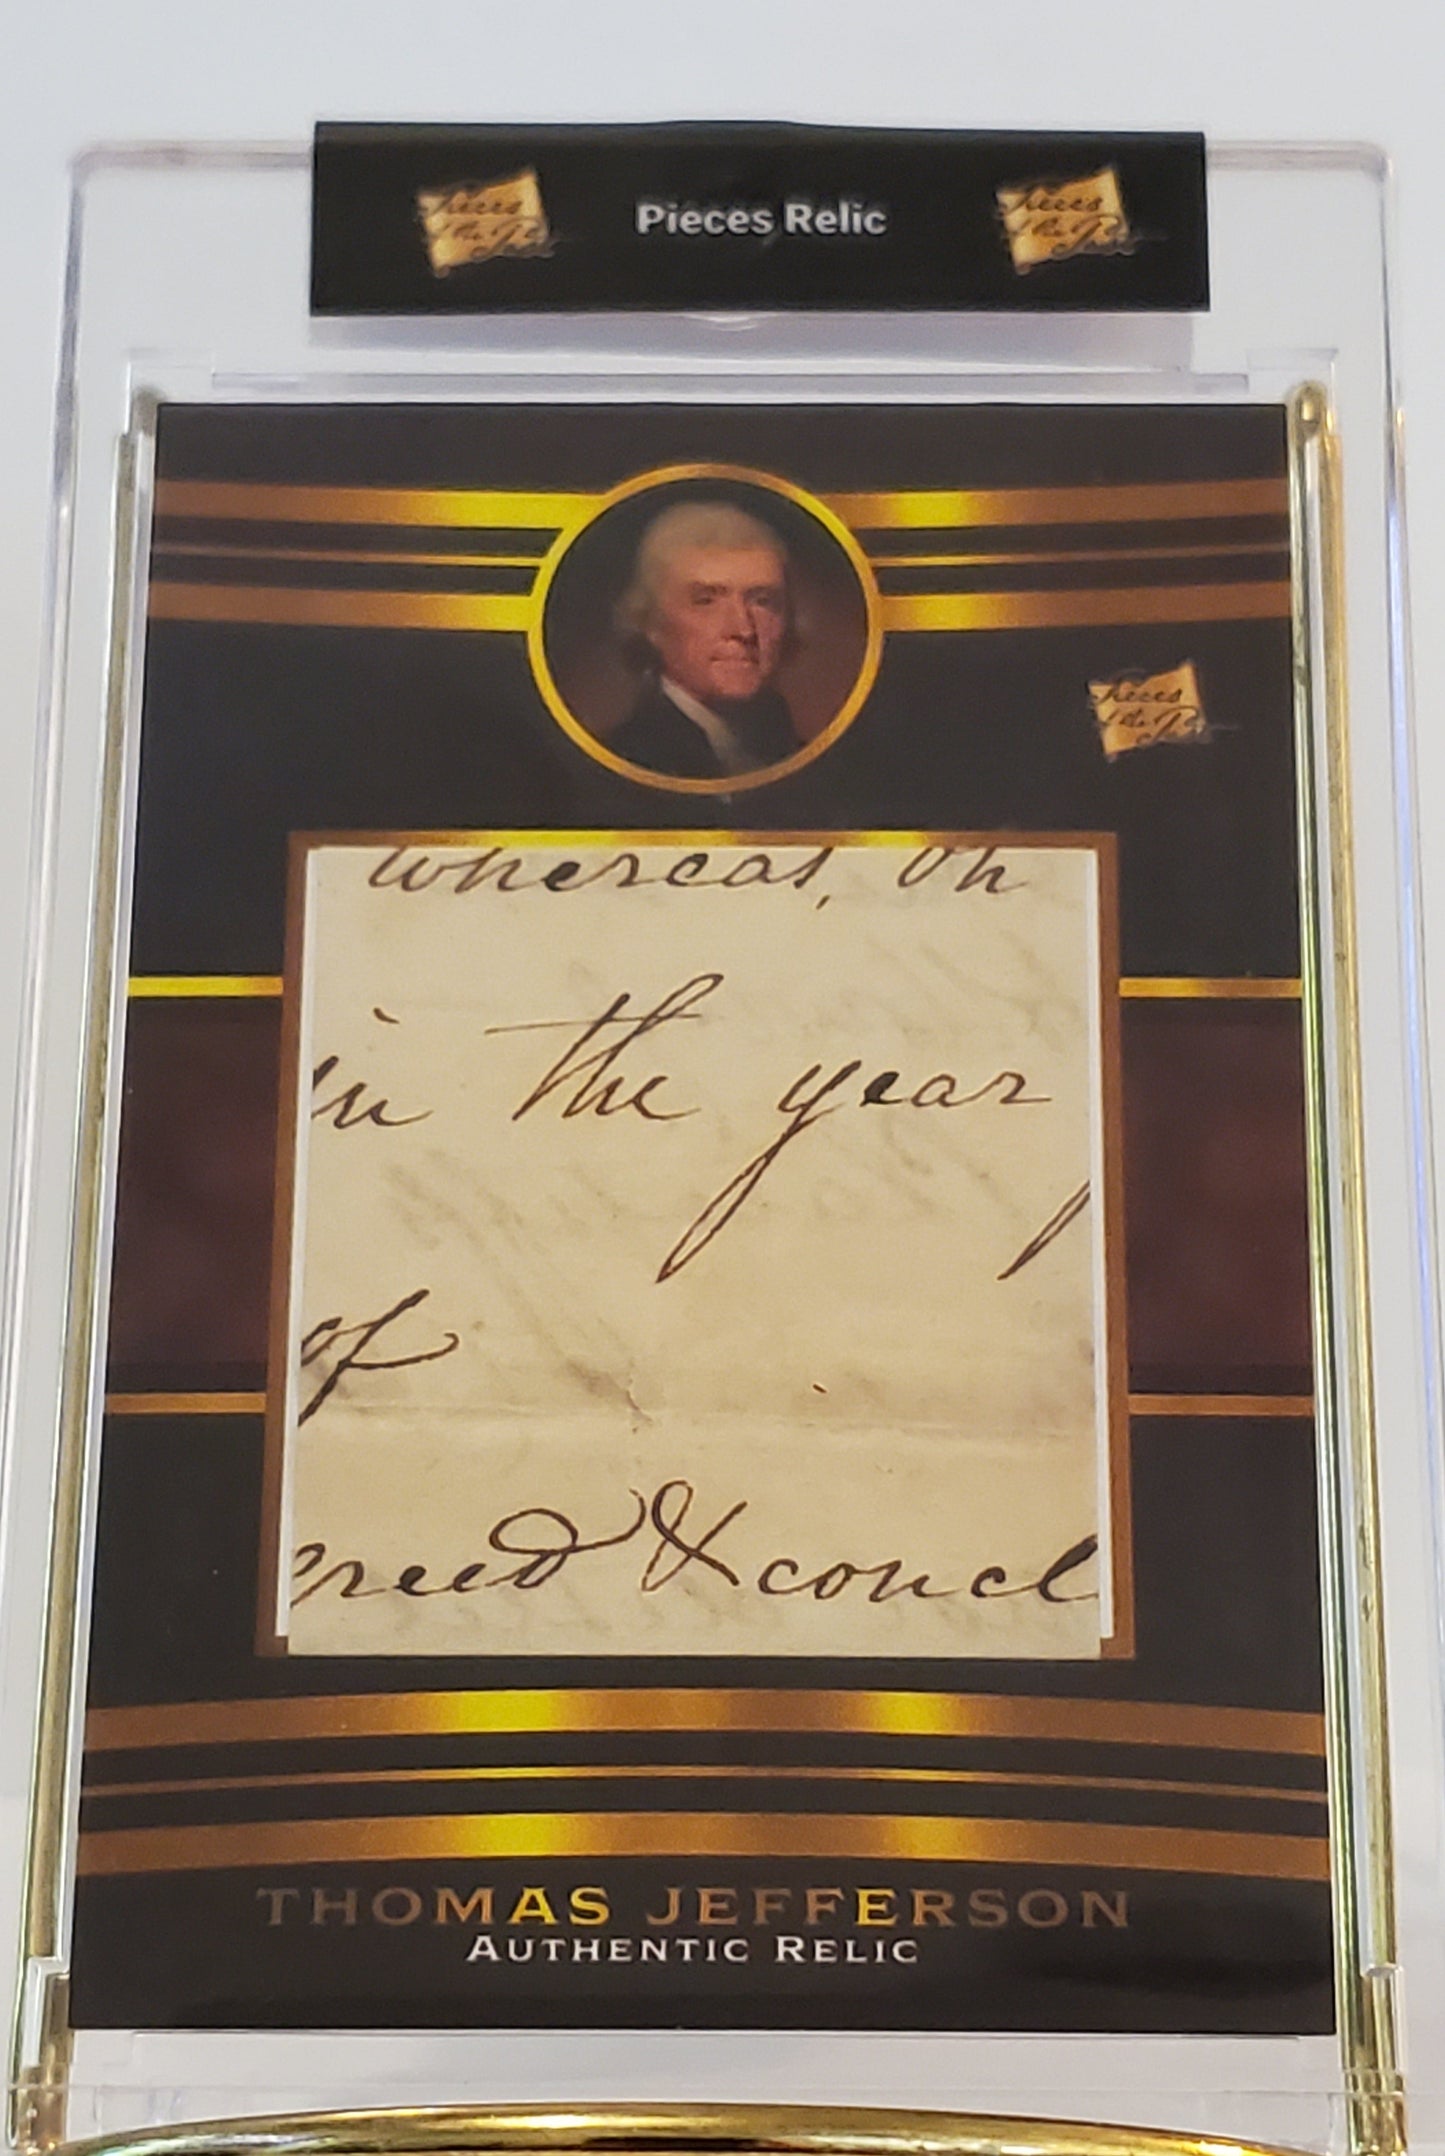 Pieces
of the Past
Pieces Relic
Pieces
of the Past
Pieces
of the Past
whereas, on
in the year
of
greed & concl
THOMAS JEFFERSON
AUTHENTIC RELIC